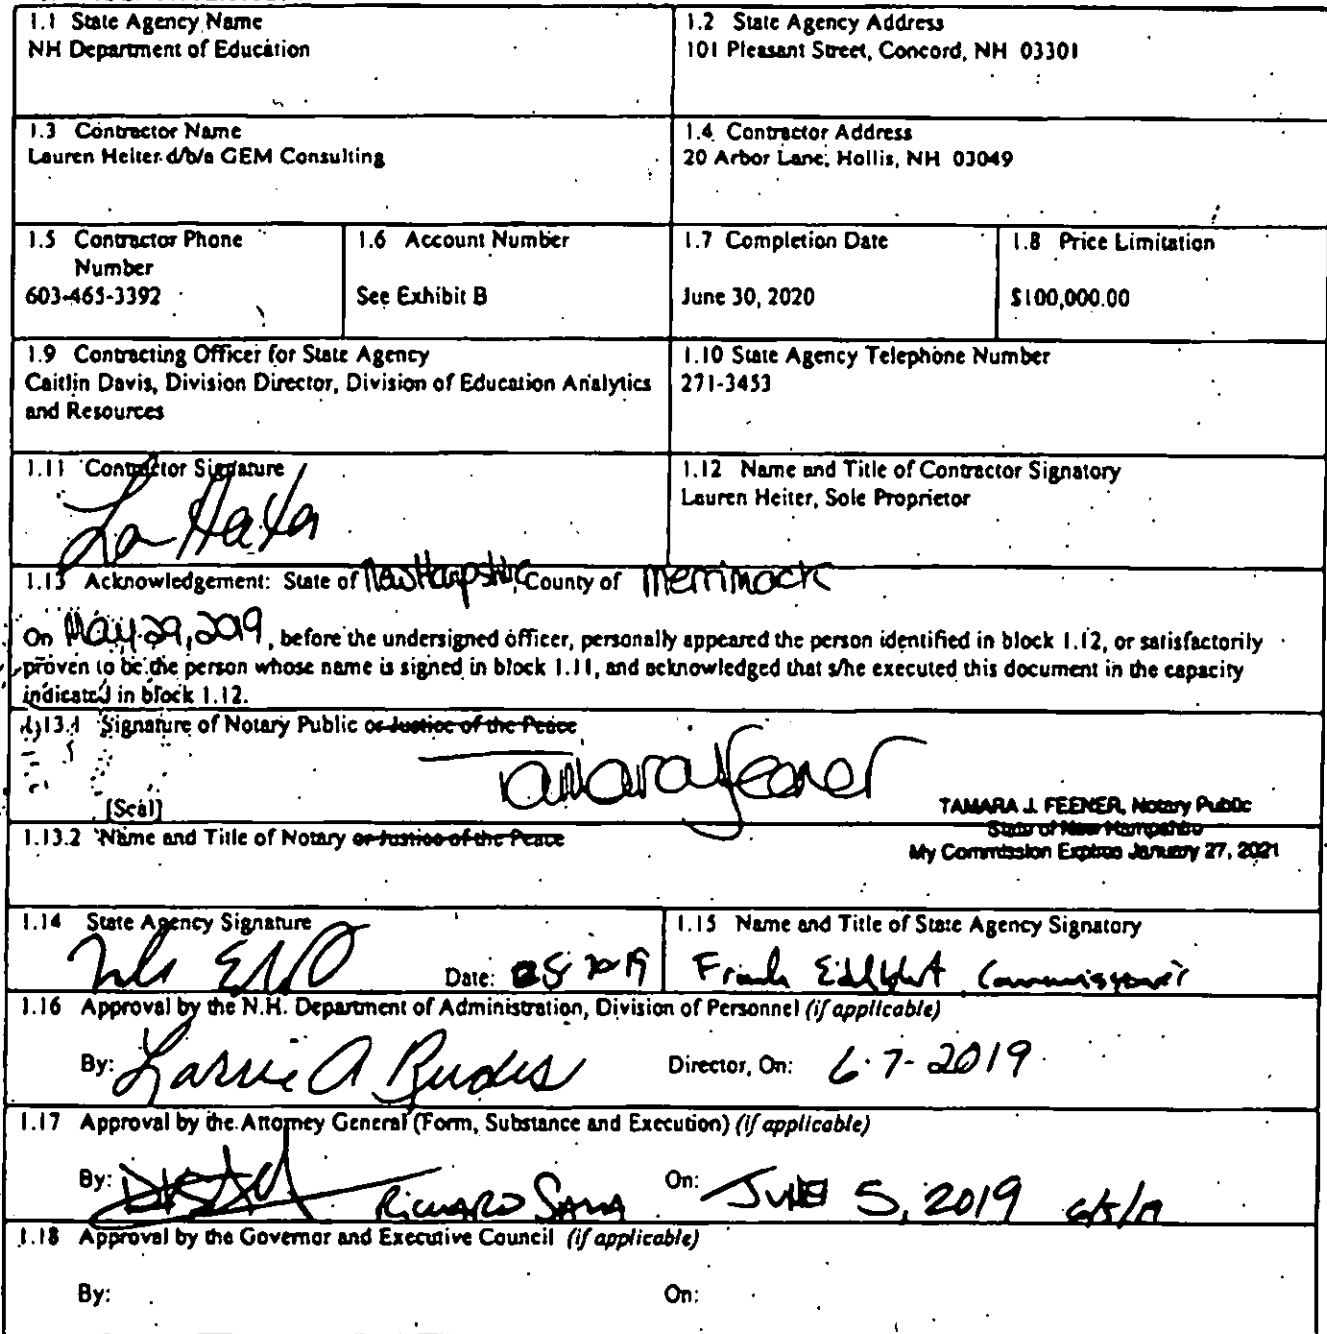 1.1 State Agency Name
NH Department of Education
1.2 State Agency Address
101 Pleasant Street, Concord, NH 03301
1.3 Contractor Name
Lauren Heiter d/b/a GEM Consulting
1.4 Contractor Address
20 Arbor Lane, Hollis, NH 03049
1.5 Contractor Phone
Number
603-465-3392
1.6 Account Number
See Exhibit B
1.7 Completion Date
June 30, 2020
1.8 Price Limitation
$100,000.00
1.9 Contracting Officer for State Agency
Caitlin Davis, Division Director, Division of Education Analytics
and Resources
1.10 State Agency Telephone Number
271-3453
1.11 Contractor Signature
1.12 Name and Title of Contractor Signatory
Lauren Heiter, Sole Proprietor
1.13 Acknowledgement: State of New Hampshire County of Merrimack
On May 29, 2019, before the undersigned officer, personally appeared the person identified in block 1.12, or satisfactorily
proven to be the person whose name is signed in block 1.11, and acknowledged that s/he executed this document in the capacity
indicated in block 1.12.
1.13.1 Signature of Notary Public or Justice of the Peace
Tamara J Feener
[Seal]
TAMARA J. FEENER, Notary Public
State of New Hampshire
My Commission Expires January 27, 2021
1.13.2 Name and Title of Notary or Justice of the Peace
1.14 State Agency Signature
Date:
1.15 Name and Title of State Agency Signatory
Frank Edelblut Commissioner
1.16 Approval by the N.H. Department of Administration, Division of Personnel (if applicable)
By: Director, On: 6-7-2019
1.17 Approval by the Attorney General (Form, Substance and Execution) (if applicable)
By: On: JUNE 5, 2019 6/5/19
1.18 Approval by the Governor and Executive Council (if applicable)
By: On: